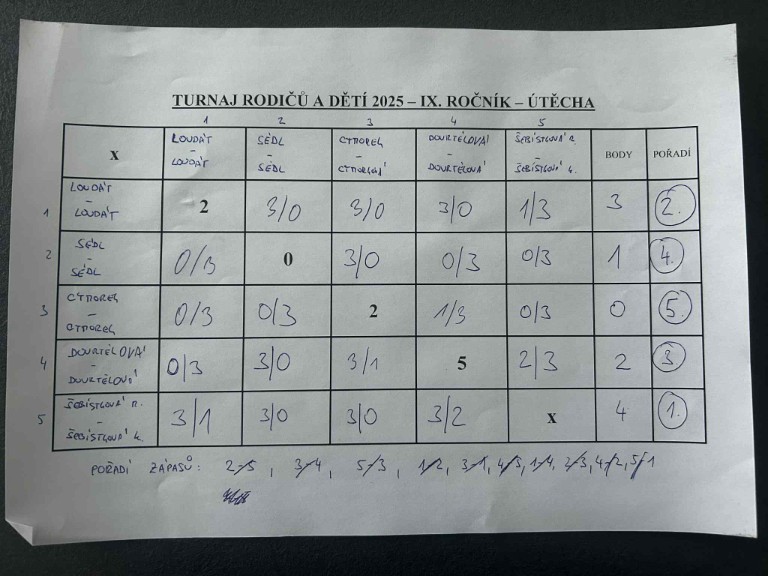 TURNAJ RODIČŮ A DĚTÍ 2025 – IX. ROČNÍK – ÚTĚCHA
1 2 3 4 5
X LOUDÁT – LOUDÁT SÉDL – SÉDL CTVOREG – CTVOREG DOUBTĚLOVÁ – DOUBTĚLOVÁ ŠEBÍSTKOVÁ R. – ŠEBÍSTKOVÁ K. BODY POŘADÍ
1 LOUDÁT – LOUDÁT 2 3/0 3/0 3/0 1/3 3 2.
2 SÉDL – SÉDL 0/3 0 3/0 0/3 0/3 1 4.
3 0/3 0/3 2 1/3 0/3 0 5.
4 0/3 3/0 3/1 5 2/3 2 3
5 3/1 3/0 3/0 3/2 X 4 1.
POŘADÍ ZÁPASŮ: 2-5, 3-4, 5-3, 1-2, 3-1, 4-5, 1-4, 2-3, 4-2, 5-1